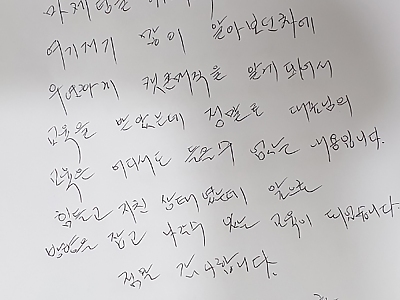 여기저기 많이 알아보던차에
우연하게 캣츠애직을 알게 되어서
교육을 받았는데 정말로 대표님의
교육은 어디서도 들을수 없는 내용입니다.
힘들고 지친 상태였는데 앞으로
방향을 잡고 나갈수 있는 교육이 되었습니다.
정말 감사합니다.